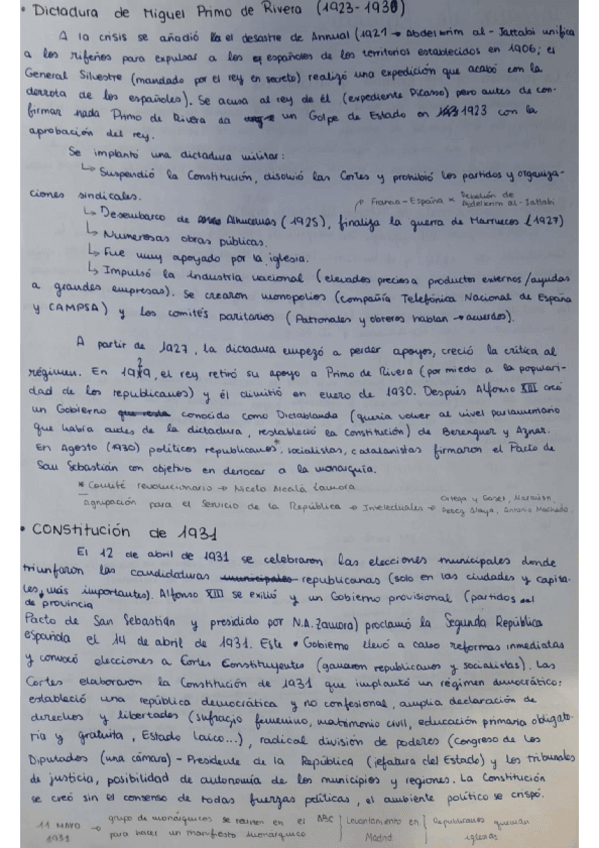 • Dictadura de Miguel Primo de Rivera (1923-1930)
A la crisis se añadió el desastre de Annual (1921 → Abdelkrim al-Jattabi unifica
a los rifeños para expulsar a los españoles de los territorios establecidos en 1906; el
General Silvestre (mandado por el rey en secreto) realizó una expedición que acabó con la
derrota de los españoles). Se acusa al rey de él (expediente Picasso) pero antes de con-
firmar nada Primo de Rivera da un Golpe de Estado en 1923 con la
aprobación del rey.
Se implantó una dictadura militar:
↳ Suspendió la Constitución, disolvió las Cortes y prohibió los partidos y organiza-
ciones sindicales.
Francia-España × Rebelión de Abdelkrim al-Jattabi
↳ Desembarco de Alhucemas (1925), finaliza la guerra de Marruecos (1927)
↳ Numerosas obras públicas.
↳ Fue muy apoyado por la iglesia.
↳ Impulsó la industria nacional (elevados precios a productos externos/ayudas
a grandes empresas). Se crearon monopolios (Compañía Telefónica Nacional de España
y CAMPSA) y los comités paritarios (Patronales y obreros hablan → acuerdos).
A partir de 1927, la dictadura empezó a perder apoyos, creció la crítica al
régimen. En 1929, el rey retiró su apoyo a Primo de Rivera (por miedo a la populari-
dad de los republicanos) y él dimitió en enero de 1930. Después Alfonso XIII creó
un Gobierno conocido como Dictablanda (quería volver al nivel parlamentario
que había antes de la dictadura, restableció la Constitución) de Berenguer y Aznar.
En Agosto (1930) políticos republicanos*, socialistas, catalanistas firmaron el Pacto de
San Sebastián con objetivo en derrocar a la monarquía.
* Comité revolucionario → Niceto Alcalá Zamora
Agrupación para el Servicio de la República → Intelectuales → Ortega y Gasset, Marañón,
Pérez Ayala, Antonio Machado.
• CONStitución de 1931
El 12 de abril de 1931 se celebraron las elecciones municipales donde
triunfaron las candidaturas republicanas (solo en las ciudades y capita-
les más importantes). Alfonso XIII se exilió y un Gobierno provisional (partidos del
de provincia
Pacto de San Sebastián y presidido por N.A. Zamora) proclamó la Segunda República
española el 14 de abril de 1931. Este Gobierno llevó a cabo reformas inmediatas
y convocó elecciones a Cortes Constituyentes (ganaron republicanos y socialistas). Las
Cortes elaboraron la Constitución de 1931 que implantó un régimen democrático:
estableció una república democrática y no confesional, amplia declaración de
derechos y libertades (sufragio femenino, matrimonio civil, educación primaria obligato-
ria y gratuita, Estado laico...), radical división de poderes (Congreso de los
Diputados (una cámara) - Presidente de la República (jefatura del Estado) y los tribunales
de justicia, posibilidad de autonomía de los municipios y regiones. La Constitución
se creó sin el consenso de todas fuerzas políticas, el ambiente político se crispó.
11 MAYO 1931 → grupo de monárquicos se reúnen en el ABC
para hacer un manifiesto monárquico
Levantamiento en Madrid
Republicanos queman iglesias